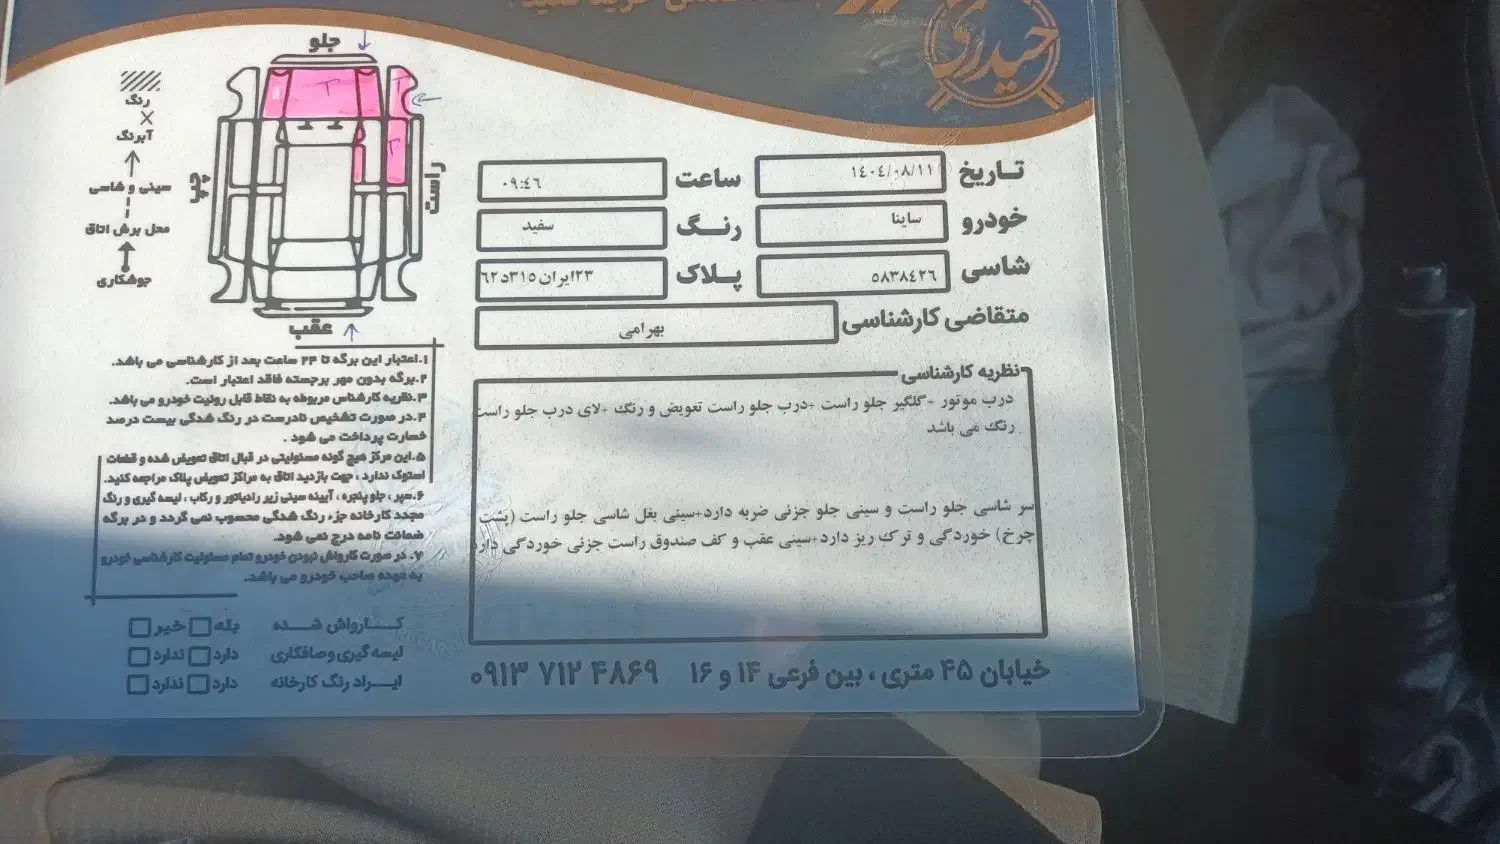 حیدری
جلو
رنگ
آبرنگ
سینی و شاسی
محل برش اتاق
جوشکاری
چپ
راست
عقب
تاریخ ۱۴۰۴/۰۸/۱۱ ساعت ۰۹:۴۶
خودرو ساینا رنگ سفید
شاسی ۵۸۳۸۴۲۶ پلاک ۲۳ایران۳۱۵د۶۲
متقاضی کارشناسی بهرامی
نظریه کارشناسی
درب موتور +گلگیر جلو راست +درب جلو راست تعویض و رنگ +لای درب جلو راست
رنگ می باشد
سر شاسی جلو راست و سینی جلو جزئی ضربه دارد+سینی بغل شاسی جلو راست (پشت
چرخ) خوردگی و ترک ریز دارد+سینی عقب و کف صندوق راست جزئی خوردگی دارد
۱.اعتبار این برگه تا ۲۴ ساعت بعد از کارشناسی می باشد.
۲.برگه بدون مهر برجسته فاقد اعتبار است.
۳.نظریه کارشناس مربوطه به نقاط قابل رویت خودرو می باشد.
۴.در صورت تشخیص نادرست در رنگ شدگی بیست درصد
خسارت پرداخت می شود .
۵.این مرکز هیچ گونه مسئولیتی در قبال اتاق تعویض شده و قطعات
استوک ندارد ، جهت بازدید اتاق به مراکز تعویض پلاک مراجعه کنید.
۶.سپر ، جلو پنجره ، آیینه سینی زیر رادیاتور و رکاب ، لیسه گیری و رنگ
مجدد کارخانه جزء رنگ شدگی محسوب نمی گردد و در برگه
ضمانت نامه درج نمی شود.
۷. در صورت کارواش نبودن خودرو تمام مسئولیت کارشناسی خودرو
به عهده صاحب خودرو می باشد.
کارواش شده بله خیر
لیسه گیری و صافکاری دارد ندارد
ایراد رنگ کارخانه دارد ندارد
خیابان ۴۵ متری ، بین فرعی ۱۴ و ۱۶ ۰۹۱۳ ۷۱۲ ۴۸۶۹